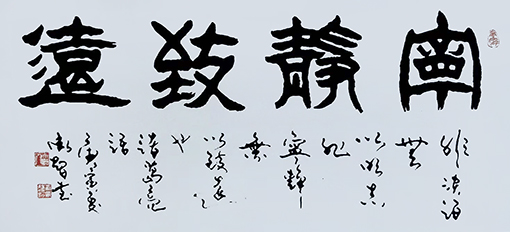 寧靜致遠
非淡泊
無
以明志
非
寧靜
無
以致遠
諸葛亮
語